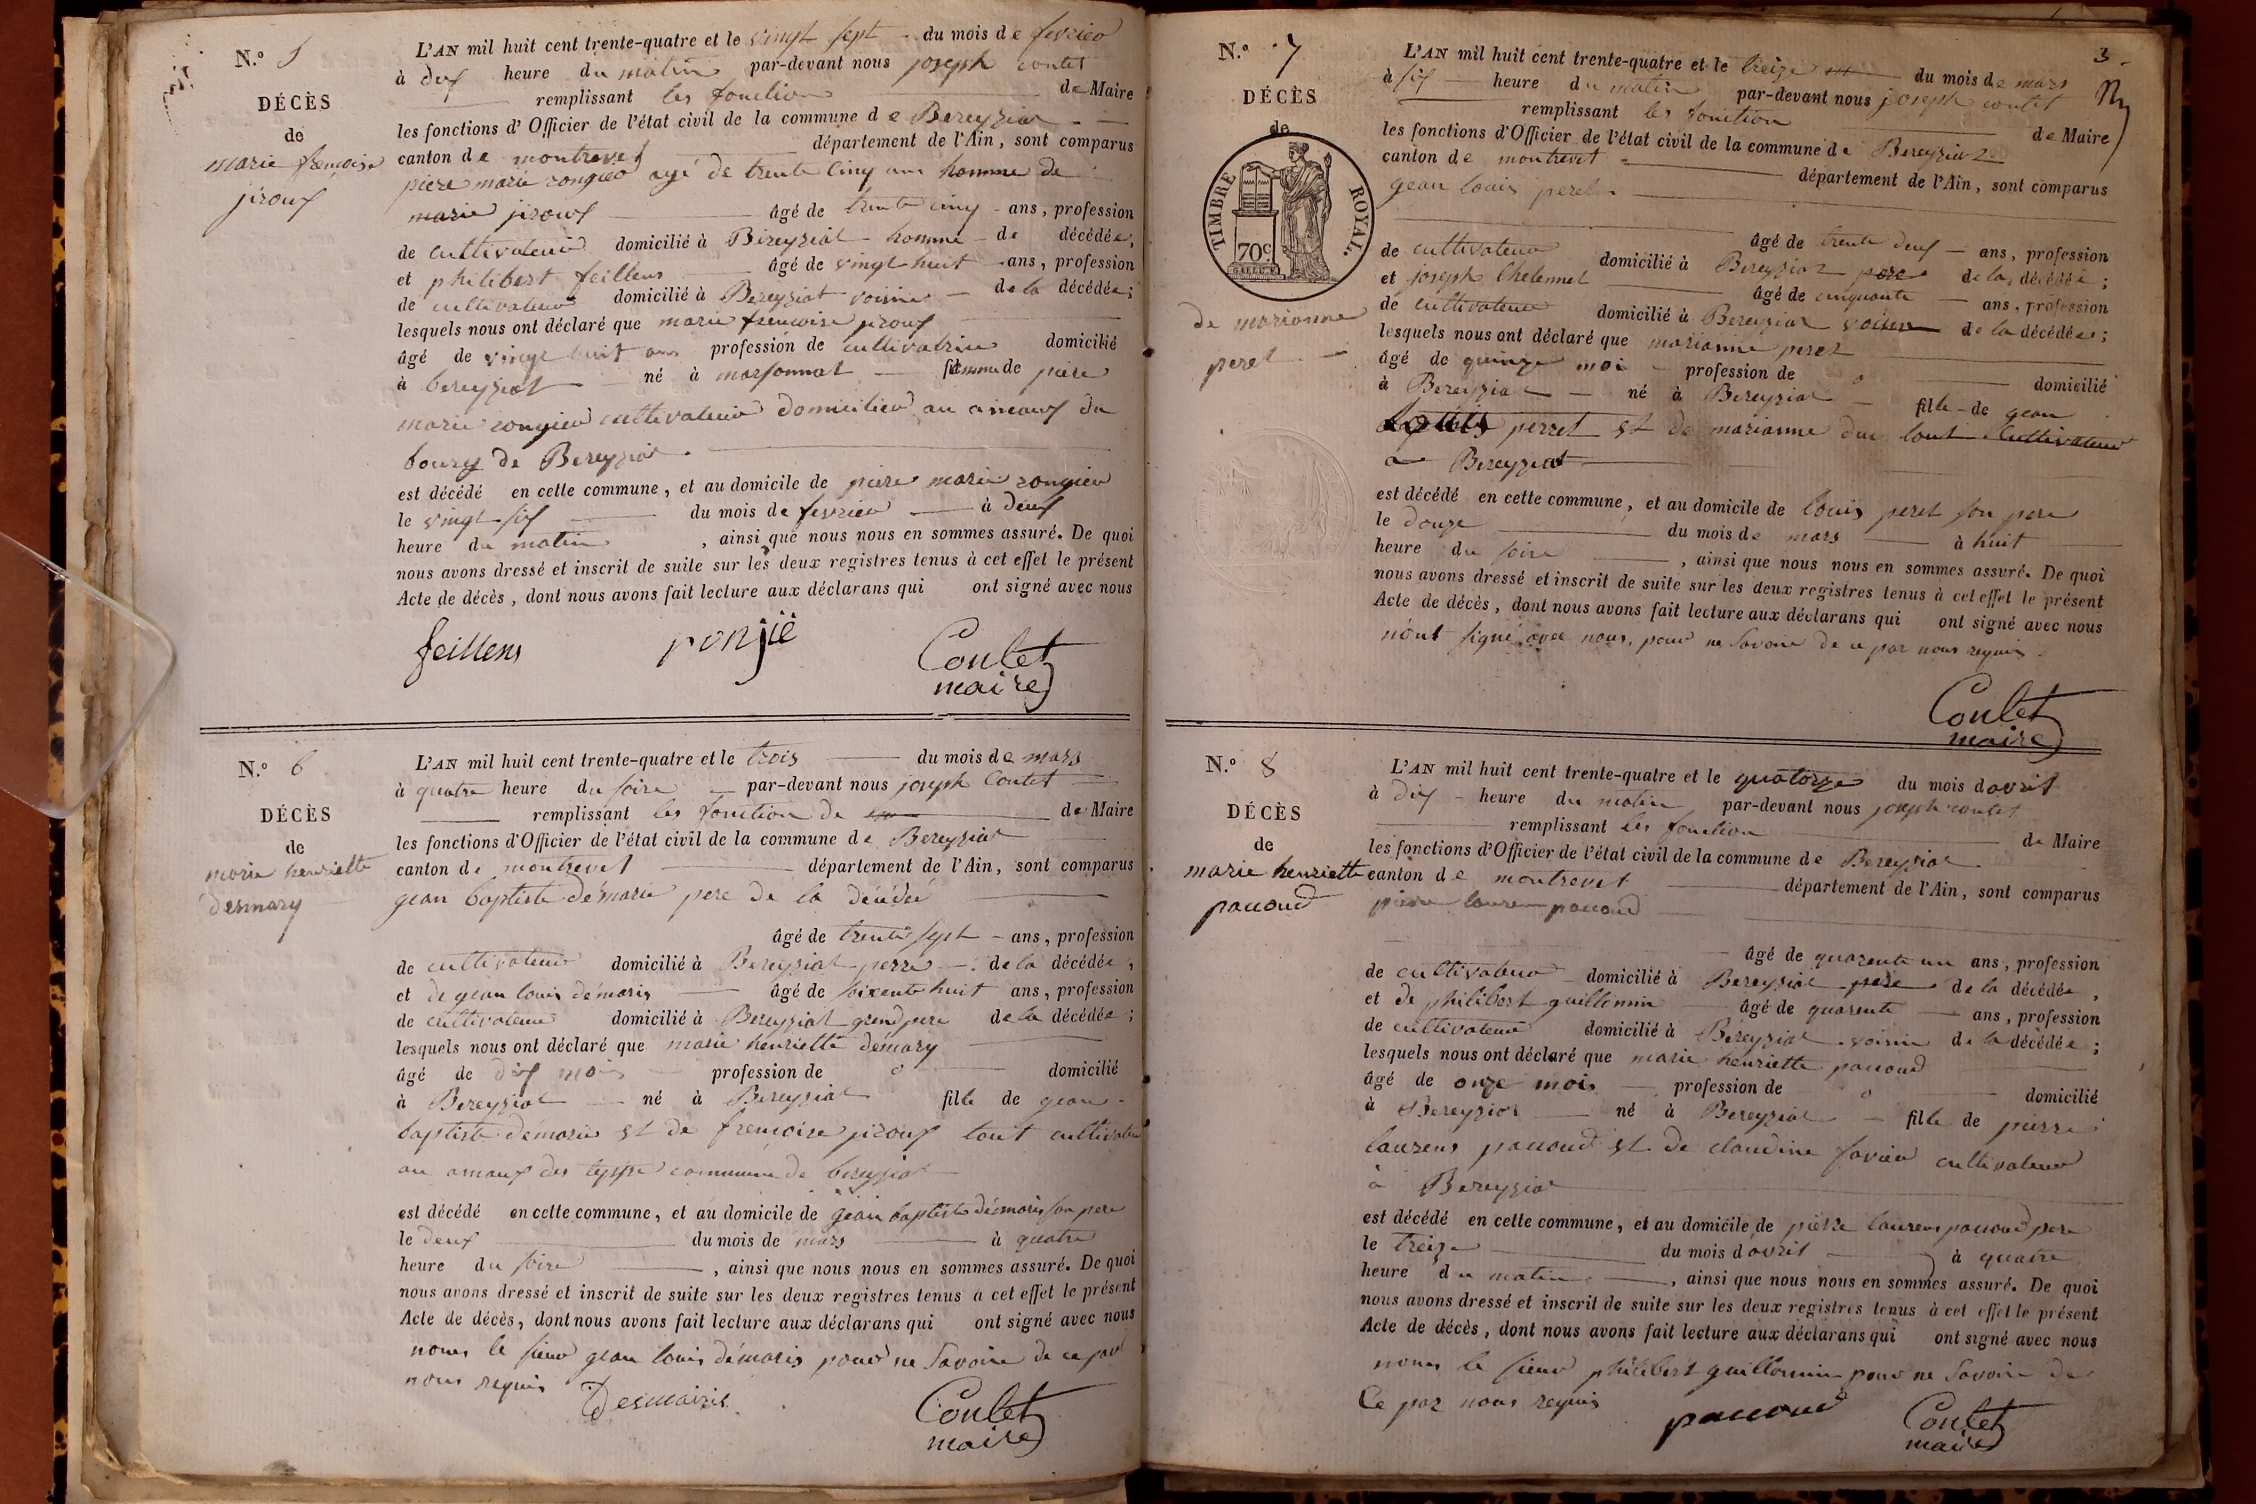 N.º 5
DÉCÈS
de
marie françoise
jirouf
L'AN mil huit cent trente-quatre et le vingt sept du mois de fevrier
à dix heure du matin par-devant nous joseph coutet
remplissant les fonction de Maire
les fonctions d'Officier de l'état civil de la commune de Bereyziat
canton de montrevet département de l'Ain, sont comparus
piere marie rongier agé de trente cinq ans homme de
marie jirouf âgé de trente cinq ans, profession
de cultivateur domicilié à Bereyziat homme de décédée,
et philibert feillens âgé de vingt huit ans, profession
de cultivateur domicilié à Bereyziat voisin de la décédée;
lesquels nous ont déclaré que marie françoise jirouf
âgé de vingt huit ans profession de cultivatrice domicilié
à bereyziat né à marsonnat femme de piere
marie rongier cultivateur domicilier au du
bourg de Bereyziat
est décédé en cette commune, et au domicile de piere marie rongier
le vingt six du mois de fevrier à deux
heure du matin, ainsi que nous nous en sommes assuré. De quoi
nous avons dressé et inscrit de suite sur les deux registres tenus à cet effet le présent
Acte de décès, dont nous avons fait lecture aux déclarans qui ont signé avec nous
feillens ronjië Coutet
maire
N.º 6
DÉCÈS
de
marie henriette
desmary
L'AN mil huit cent trente-quatre et le trois du mois de mars
à quatre heure du soire par-devant nous joseph Coutet
remplissant les fonction de de Maire
les fonctions d'Officier de l'état civil de la commune de Bereyziat
canton de montrevet département de l'Ain, sont comparus
gean baptiste démarie pere de la décédée
âgé de trente sept ans, profession
de cultivateur domicilié à Bereyziat perre de la décédée,
et de gean louis démaris âgé de soixente huit ans, profession
de cultivateur domicilié à Bereyziat grend pere de la décédée;
lesquels nous ont déclaré que marie henriette démary
âgé de dix mois profession de o domicilié
à Bereyziat né à Bereyziat fille de gean
baptiste démarie et de françoise jirouf tout cultivateur
au des commune de bereyziat
est décédé en cette commune, et au domicile de gean baptiste démaris son pere
le deux du mois de mars à quatre
heure du soire, ainsi que nous nous en sommes assuré. De quoi
nous avons dressé et inscrit de suite sur les deux registres tenus à cet effet le présent
Acte de décès, dont nous avons fait lecture aux déclarans qui ont signé avec nous
nous le sieur gean louis démaris pour ne savoire de ce par
nous requis
Desmairis Coutet
maire
3
N.º 7
DÉCÈS
de
TIMBRE ROYAL.
70c
de marianne
peret
L'AN mil huit cent trente-quatre et le treize du mois de mars
à six heure du matin par-devant nous joseph coutet
remplissant les fonction de Maire
les fonctions d'Officier de l'état civil de la commune de Bereyziat
canton de montrevet département de l'Ain, sont comparus
gean louis peret
âgé de trente deux ans, profession
de cultivateur domicilié à Bereyziat pere de la décédée;
et joseph Chelennet âgé de cinquante ans, profession
de cultivateur domicilié à Bereyziat voisin de la décédée;
lesquels nous ont déclaré que marianne peret
âgé de quinze moi profession de o domicilié
à Bereyziat né à Bereyziat fille de gean
Louis perret et de marianne tout cultivateur
a Bereyziat
est décédé en cette commune, et au domicile de louis peret son pere
le douze du mois de mars à huit
heure du soire, ainsi que nous nous en sommes assuré. De quoi
nous avons dressé et inscrit de suite sur les deux registres tenus à cet effet le présent
Acte de décès, dont nous avons fait lecture aux déclarans qui ont signé avec nous
n'ont signé avec nous, pour ne savoire de ce par nous requis
Coutet
maire
N.º 8
DÉCÈS
de
marie henriette
pauoud
L'AN mil huit cent trente-quatre et le quatorze du mois d avril
à dix heure du matin par-devant nous joseph coutet
remplissant les fonction de Maire
les fonctions d'Officier de l'état civil de la commune de Bereyziat
canton de montrevet département de l'Ain, sont comparus
pierre lauren pauoud
âgé de quarente un ans, profession
de cultivateur domicilié à Bereyziat pere de la décédée,
et de philibert guillemin âgé de quarente ans, profession
de cultivateur domicilié à Bereyziat voisin de la décédée;
lesquels nous ont déclaré que marie henriette pauoud
âgé de onze mois profession de o domicilié
à Bereyziat né à Bereyziat fille de pierre
laurens pauoud et de claudine favier cultivateur
à Bereyziat
est décédé en cette commune, et au domicile de pierre laurens pauoud pere
le treize du mois d avril à quatre
heure du matin, ainsi que nous nous en sommes assuré. De quoi
nous avons dressé et inscrit de suite sur les deux registres tenus à cet effet le présent
Acte de décès, dont nous avons fait lecture aux déclarans qui ont signé avec nous
nous le sieur philibert guillemin pour ne savoire de
Ce par nous requis
pauoud Coutet
maire